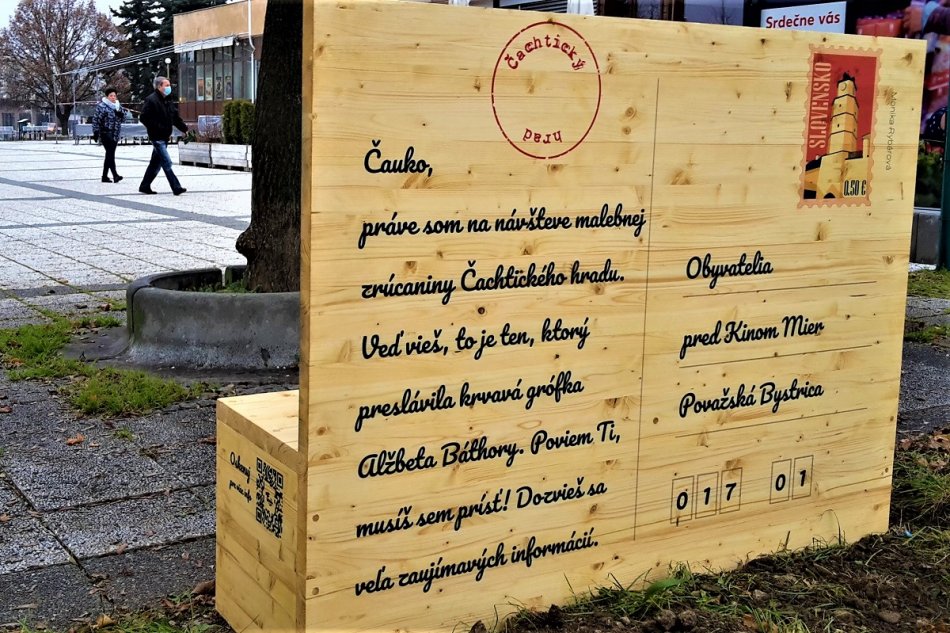 Srdečne vás
Čachtický
hrad
SLOVENSKO
0,50 €
Monika Rybárová
Čauko,
práve som na návšteve malebnej
zrúcaniny Čachtického hradu.
Veď vieš, to je ten, ktorý
preslávila krvavá grófka
Alžbeta Báthory. Poviem Ti,
musíš sem prísť! Dozvieš sa
veľa zaujímavých informácií.
Obyvatelia
pred Kinom Mier
Považská Bystrica
017 01
Oskenuj
pre viac info